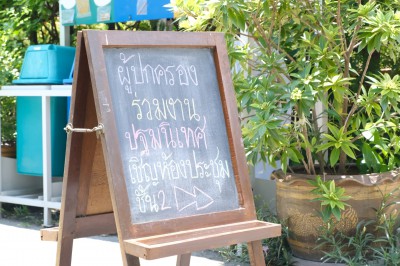 ผู้ปกครอง
ร่วมงาน
ปฐมนิเทศ
เชิญห้องประชุม
ชั้น 2